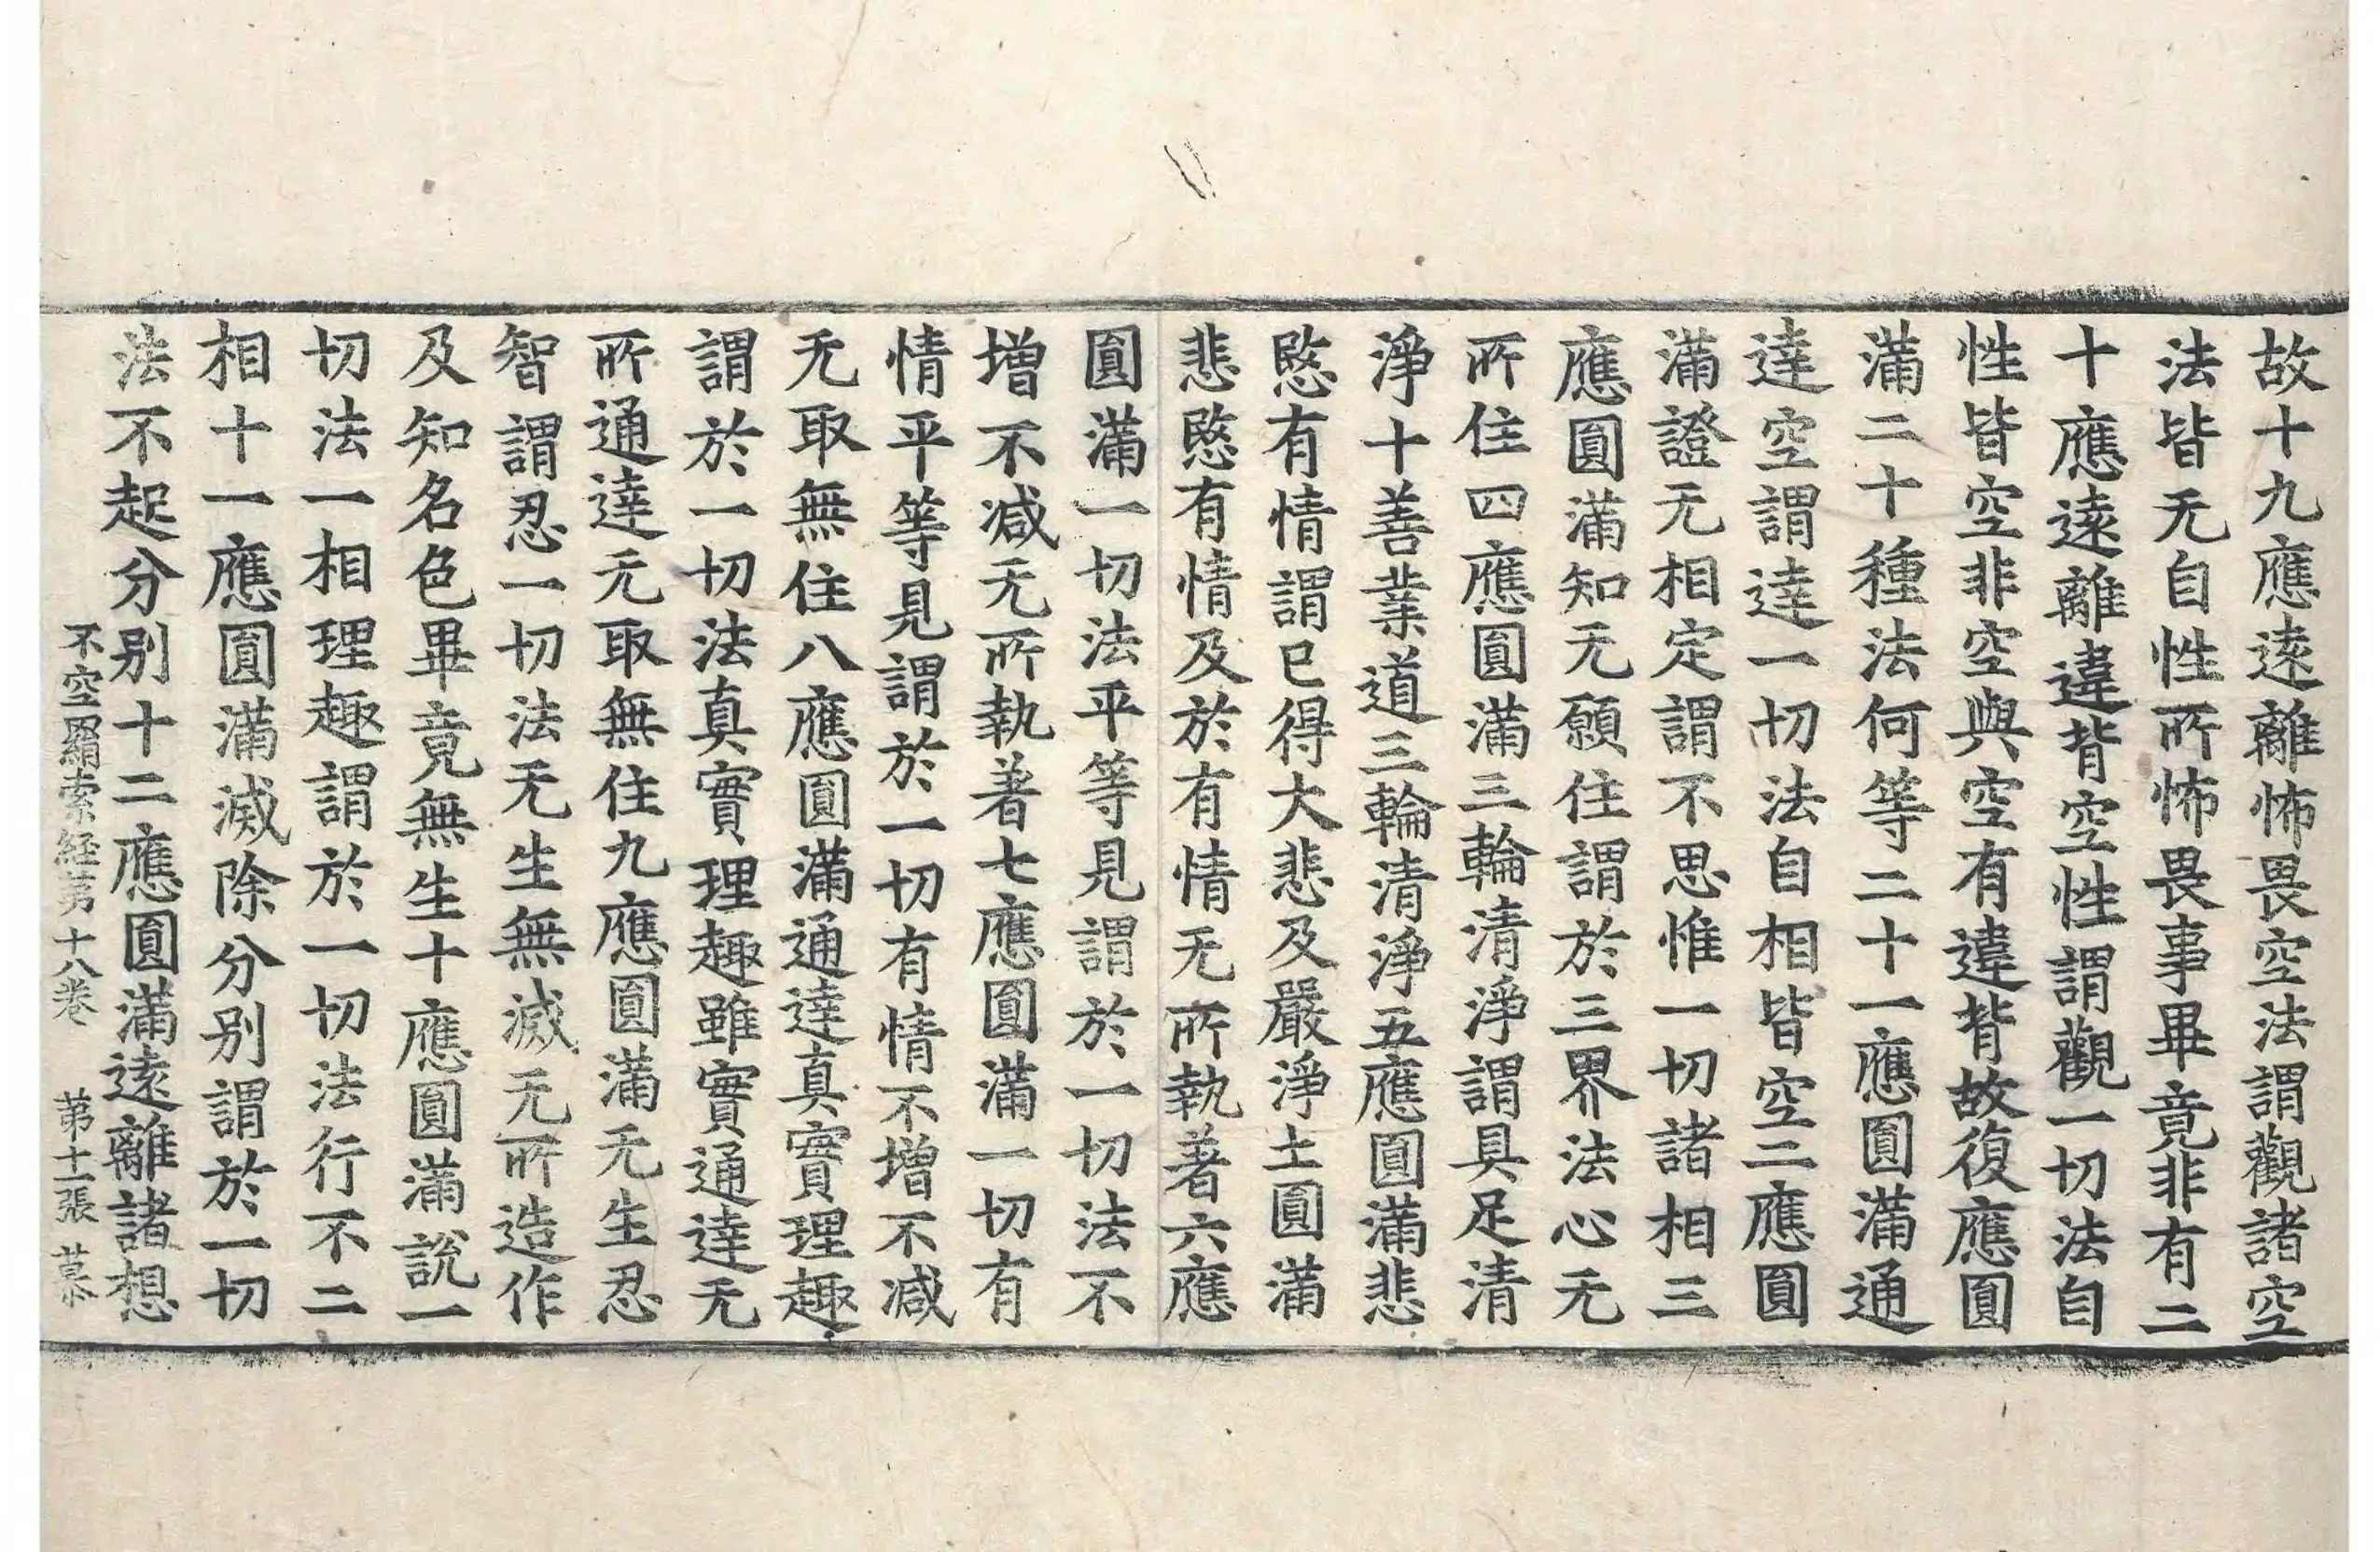 故十九應遠離怖畏空法謂觀諸空
法皆无自性所怖畏事畢竟非有二
十應遠離違背空性謂觀一切法自
性皆空非空與空有違背故復應圓
滿二十種法何等二十一應圓滿通
達空謂達一切法自相皆空二應圓
滿證无相定謂不思惟一切諸相三
應圓滿知无願住謂於三界法心无
所住四應圓滿三輪清淨謂具足清
淨十善業道三輪清淨五應圓滿悲
愍有情謂已得大悲及嚴淨土圓滿
悲愍有情及於有情无所執著六應
圓滿一切法平等見謂於一切法不
增不减无所執著七應圓滿一切有
情平等見謂於一切有情不增不减
无取無住八應圓滿通達真實理趣
謂於一切法真實理趣雖實通達无
所通達无取無住九應圓滿无生忍
智謂忍一切法无生無滅无所造作
及知名色畢竟無生十應圓滿說一
切法一相理趣謂於一切法行不二
相十一應圓滿滅除分别謂於一切
法不起分别十二應圓滿遠離諸想
不空羂索経苐十八卷 苐十二張 慕